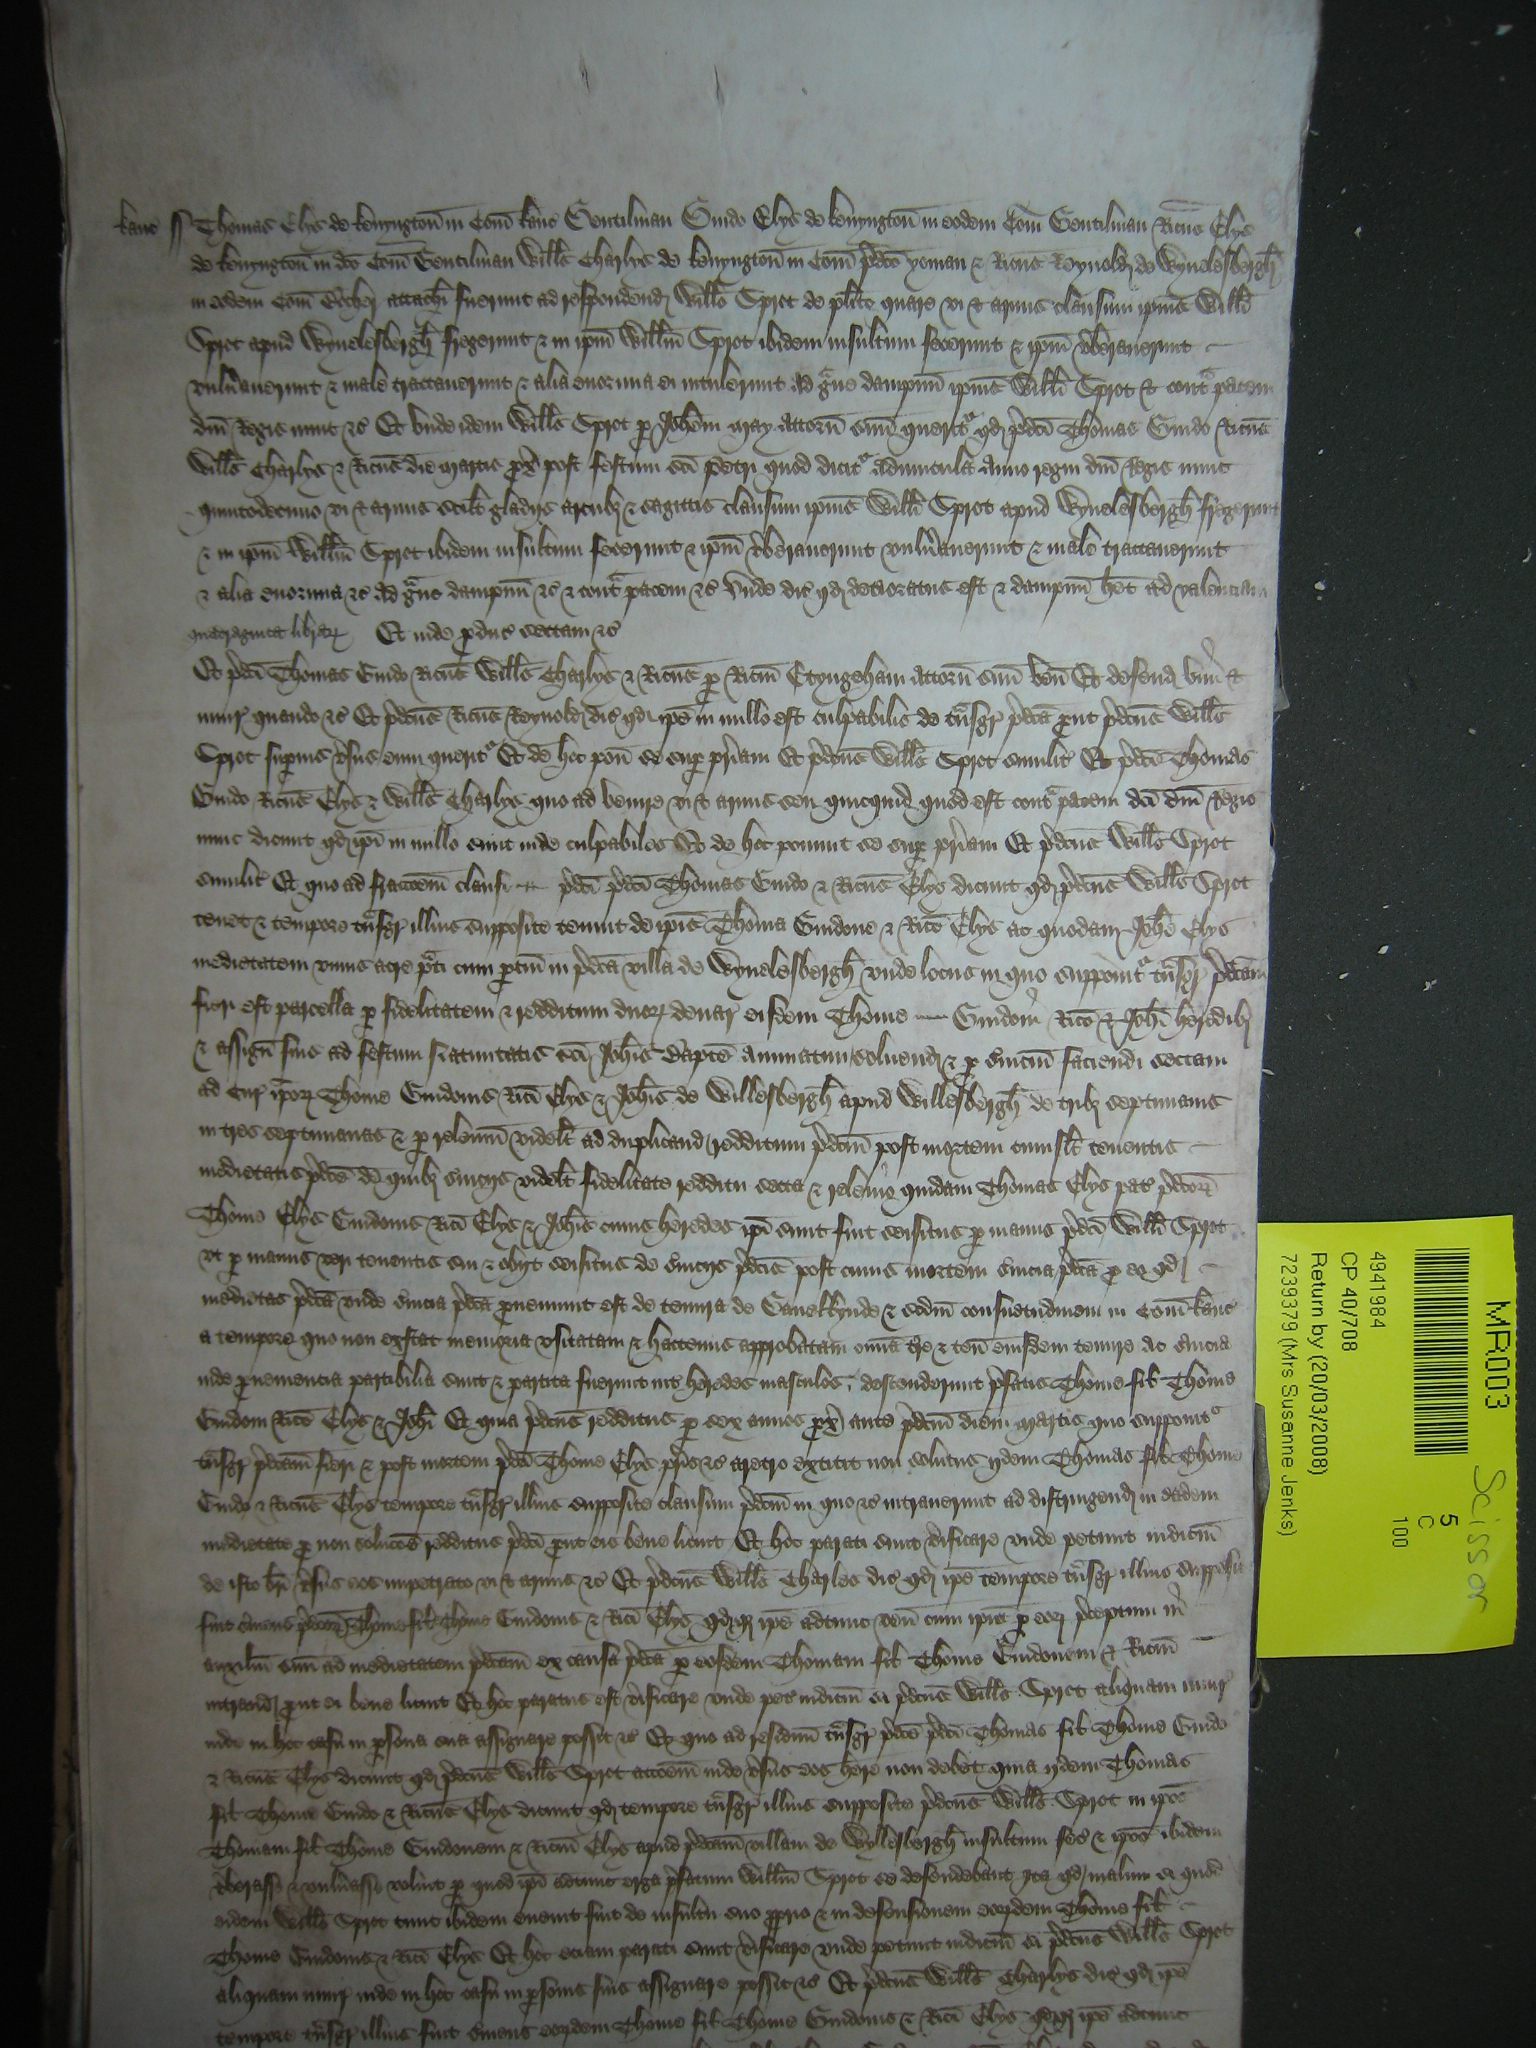 kanc ss Thomas Elys de kenyngton in Com kanc Gentilman Guido Elys de kenyngton in eodem Com Gentilman Ricus Elys
de kenyngton in dco Com Gentilman Wills Charlys de kenyngton in Com pdco yoman & Ricus Reynold de Wynelesbergh
in eodem Com attach fuerunt ad respondend Willo Sprot de plito quare vi & armis clausum ipius Willi
Sprot apud Wynelesbergh fregerunt & in ipm Willm Sprot ibidem insultum fecerunt & ipm vberauerunt
vulnauerunt & male tractauerunt & alia enormia ei intulerunt ad gue dampnu ipius Willi Sprot & conta pacem
dni Regis nunc &c Et vnde idem Wills Sprot p Johem May Attorn suu querit qd pdci Thomas Guido Ricus
Wills Charlys & Ricus die martis px post festum sci Petri quod dicit Aduincula Anno regni dni Regis nunc
quintodecimo vi & armis scilt gladijs arcub & sagittis clausum ipius Willi Sprot apud Wynelesbergh fregerunt
& in ipm Willm Sprot ibidem insultum fecerunt & ipm vberauerunt vulnauerunt & male tractauerunt
& alia enormia &c Ad gue dampnu &c & conta pacem &c Vnde dic qd deterioratus est & dampnu het ad valenciam
quadraginta librar Et inde pduc sectam &c
Et pdci Thomas Guido Ricus Wills Charlys & Ricus p Ricm Etyngeham Attorn suu ven Et defend vim &
iniur quando &c Et pdcus Ricus Reynold dic qd ipe in nullo est culpabilis de tnsgr pdca put pdcus Wills
Sprot supius vsus eum querit Et de hoc pon se sup priam Et pdcus Wills Sprot simulit Et pdci Thomas
Guido Ricus Elys & Wills Charlys quo ad venire vi & armis seu quicquid quod est conta pacem dci dni Regis
nunc dicunt qd ipi in nullo sunt inde culpabiles Et de hoc ponunt se sup priam Et pdcus Wills Sprot
simulit Et quo ad fraccoem clausi pdci pdci Thomas Guido & Ricus Elys dicunt qd pdcus Wills Sprot
tenet & tempore tnsgr illius supposite tenuit de ipis Thoma Guidone & Rico Elys ac quodam Johe Elys
medietatem vnius acre pti cum ptin in pdca villa de Wynelesbergh vnde locus in quo supponit tnsgr pdcam
fieri est parcella p fidelitatem & redditum duor denar eisdem Thome Guidoni Rico & Johi heredib
& assign suis ad festum Natiuitatis sci Johis Bapte annuatim soluend & p suicium faciendi sectam
ad cur ipor Thome Guidonis Rici Elys & Johis de Willesbergh apud Willesbergh de trib septimanis
in tres septimanas & p releuiu videlt ad duplicand redditum pdcm post mortem cuiuslt tenentis
medietatis pdce de quib suicijs videlt fidelitate redditu secta & releuio quidam Thomas Elys pat pdcor
Thome Elys Guidonis Rici Elys & Johis cuius heredes ipi sunt fuit seisitus p manus pdci Willi Sprot
vt p manus veri tenentis sui & obijt seisitus de suicijs pdcis post cuius mortem suicia pdca p eo qd
medietas pdca vnde suicia pdca pueniunt est de tenura de Gauelkynde & scdm consuetudinem in Com kanc
a tempore quo non exstat memoria vsitatam & hactenus approbatam omia tre & ten eiusdem tenure ac suicia
inde pueniencia partibilia sunt & partita fuerunt int heredes masculos descenderunt pfatis Thome fil Thome
Guidoni Rico Elys & Johi Et quia pdcus redditus p sex annos px ante pdcm diem martis quo supponit
tnsgr pdcam fieri & post mortem pdci Thome Elys pris &c aretro extitit non solutus ijdem Thomas fil Thome
Guido & Ricus Elys tempore tnsgr illius supposite clausum pdcm in quo &c intrauerunt ad distringend in eadem
medietate p non solucoe redditus pdci put eis bene licuit Et hoc parati sunt vificare vnde petunt iudiciu
de isto bri vsus eos impetrato vi & armis &c Et pdcus Wills Charles dic qd ipe tempore tnsgr illius supposite
fuit suiens pdcor Thome fil Thome Guidonis & Rici Elys qd ipe adtunc ven cum ipis p eor pceptum in
auxiliu suu ad medietatem pdcam ex causa pdca p eosdem Thomam fil Thome Guidonem & Ricm
intrand put ei bene licuit Et hoc paratus est vificare vnde pet iudiciu si pdcus Wills Sprot aliquam iniur
inde in hoc casu in psona sua assignare possit &c Et quo ad residuu tnsgr pdce pdci Thomas fil Thome Guido
& Ricus Elys dicunt qd pdcus Wills Sprot accoem inde vsus eos here non debet quia ijdem Thomas
fil Thome Guido & Ricus Elys dicunt qd tempore tnsgr illius supposite pdcus Wills Sprot in ipos
Thomam fil Thome Guidonem & Ricm Elys apud pdcam villam de Wyllesbergh insultum fec & ipos ibidem
vberasse & vulnasse voluit p quod ipi adtunc erga pfatum Willm Sprot se defendebant Ita qd malum si quod
eidem Willo Sprot tunc ibidem euenit fuit de insultu suo pprio & in defensionem eordem Thome fil
Thome Guidonis & Rici Elys Et hoc eciam parati sunt vificare vnde petunt iudiciu si pdcus Wills Sprot
aliquam iniur inde in hoc casu in psonis suis assignare possit &c Et pdcus Wills Charlys dic qd ipe
tempore tnsgr illius fuit suiens eordem Thome fil Thome Guidonis & Rici Elys qd ipe adtunc
MR003
4941984
CP 40/708
Return by (20/03/2008)
7239379 (Mrs Susanne Jenks)
5
C
100
Scissor